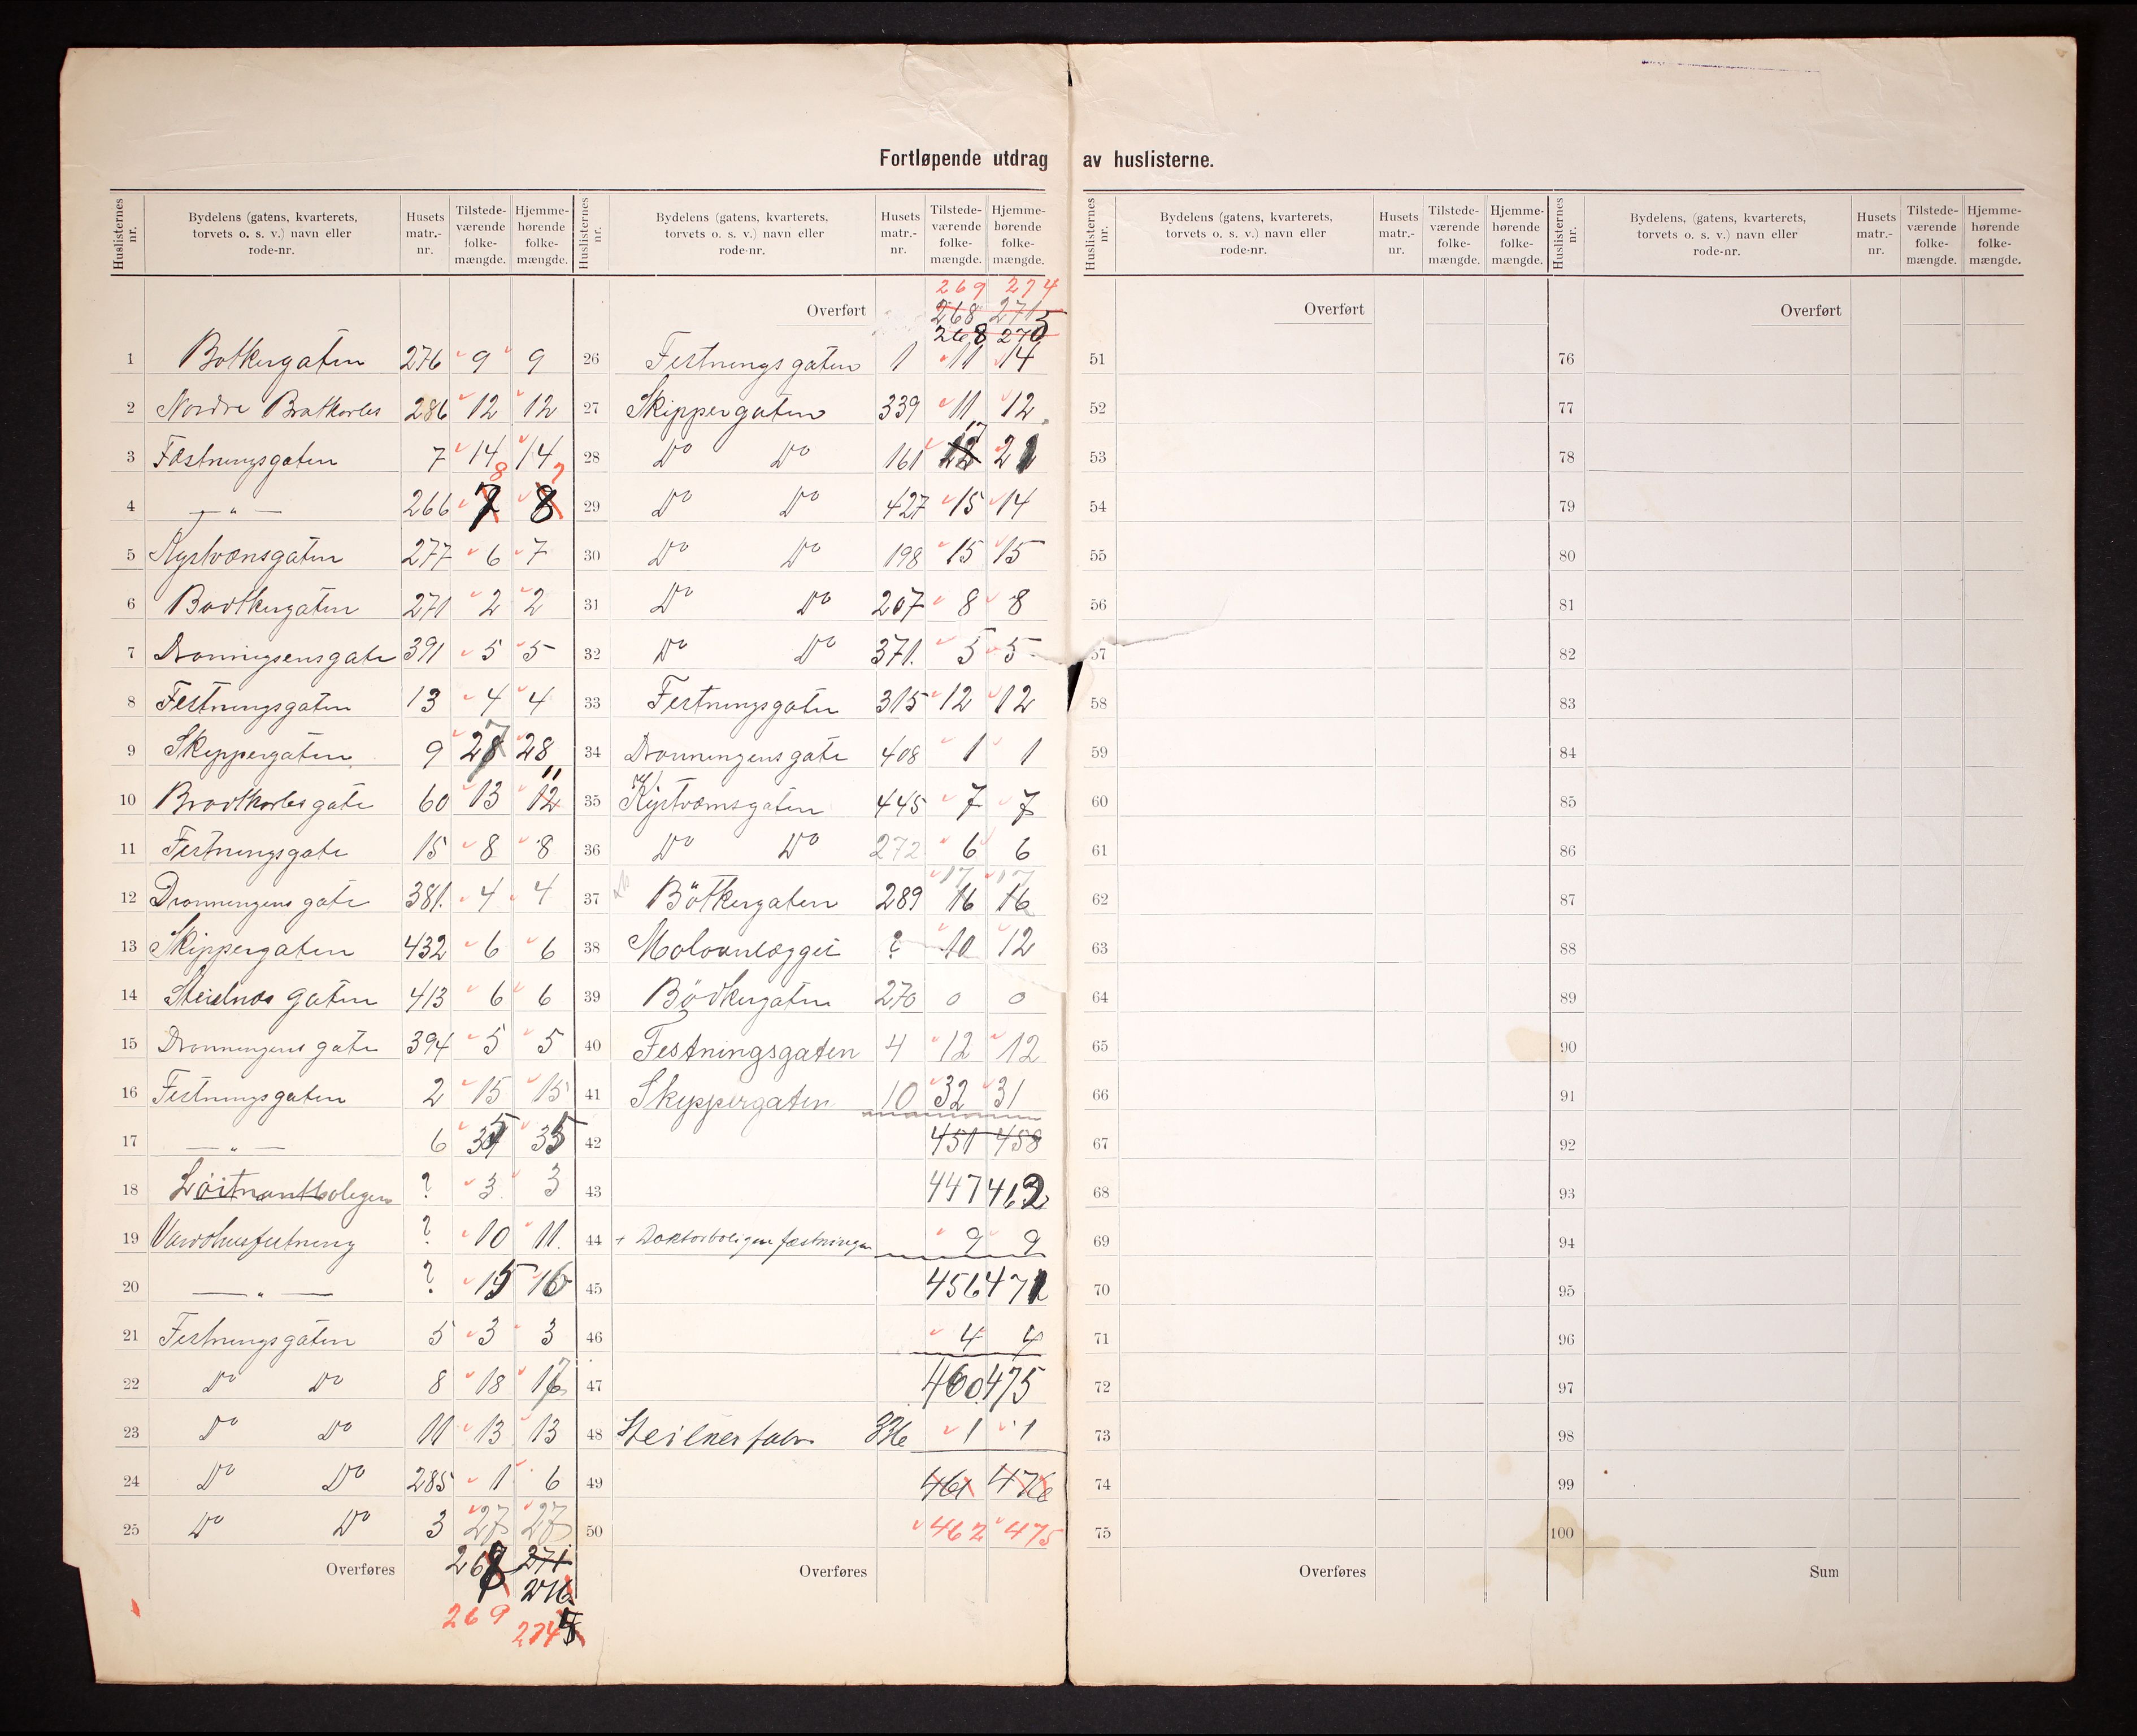 Fortløpende utdrag av huslisterne.
Huslisternes nr. | Bydelens (gatens, kvarterets, torvets o. s. v.) navn eller rode-nr. | Husets matr.-nr. | Tilstede-værende folke-mængde. | Hjemme-hørende folke-mængde.
1 Botkergaten 276 9 9
2 Nordre Bratkorbs 286 12 12
3 Fæstningsgaten 7 14 14
4 — " — 266 7 8 8 7
5 Kystvonsgaten 277 6 7
6 Bødtkergaten 271 2 2
7 Dronnigensgate 391 5 5
8 Festningsgaten 13 4 4
9 Skippergaten 9 27 28
10 Brodtkorbsgate 60 13 12 11
11 Festningsgate 15 8 8
12 Dronningens gate 381. 4 4
13 Skippergaten 432 6 6
14 Steilnes gaten 413 6 6
15 Dronningens gate 394 5 5
16 Festningsgaten 2 15 15
17 — " — 6 35 35
18 Löitnantboligen ? 3 3
19 Vardöhusfestning ? 10 11.
20 — " — ? 15 16
21 Festningsgaten 5 3 3
22 Do Do 8 18 17
23 Do Do 11 13 13
24 Do Do 285 1 6
25 Do Do 3 27 27
Overføres 268 271
276
269 274
Huslisternes nr. | Bydelens (gatens, kvarterets, torvets o. s. v.) navn eller rode-nr. | Husets matr.-nr. | Tilstede-værende folke-mængde. | Hjemme-hørende folke-mængde.
269 274
Overført 268 271
268 275
26 Festningsgaten 1 11 14
27 Skippergaten 339 11 12
28 Do Do 161 17 21
29 Do Do 427 15 14
30 Do Do 198 15 15
31 Do Do 207 8 8
32 Do Do 371. 5 5
33 Festningsgaten 315 12 12
34 Dronningensgate 408 1 1
35 Kystværnsgaten 445 7 7
36 Do Do 272 6 6
37 Bötkergaten 289 16 16 17 17
38 Moloanlægget ? 10 12
39 Bödkergaten 270 0 0
40 Festningsgaten 4 12 12
41 Skippergaten 10 32 31
42 451 458
43 447 462
44 + Doktorboligen fæstningen 9 9
45 456 471
46 4 4
47 460. 475
48 Steilnesfabr. 336 1 1
49 461 476
50 462 475
Overføres
Huslisternes nr. | Bydelens (gatens, kvarterets, torvets o. s. v.) navn eller rode-nr. | Husets matr.-nr. | Tilstede-værende folke-mængde. | Hjemme-hørende folke-mængde.
Overført
51
52
53
54
55
56
57
58
59
60
61
62
63
64
65
66
67
68
69
70
71
72
73
74
75
Overføres
Huslisternes nr. | Bydelens, (gatens, kvarterets, torvets o. s. v.) navn eller rode-nr. | Husets matr.-nr. | Tilstede-værende folke-mængde. | Hjemme-hørende folke-mængde.
Overført
76
77
78
79
80
81
82
83
84
85
86
87
88
89
90
91
92
93
94
95
96
97
98
99
100
Sum